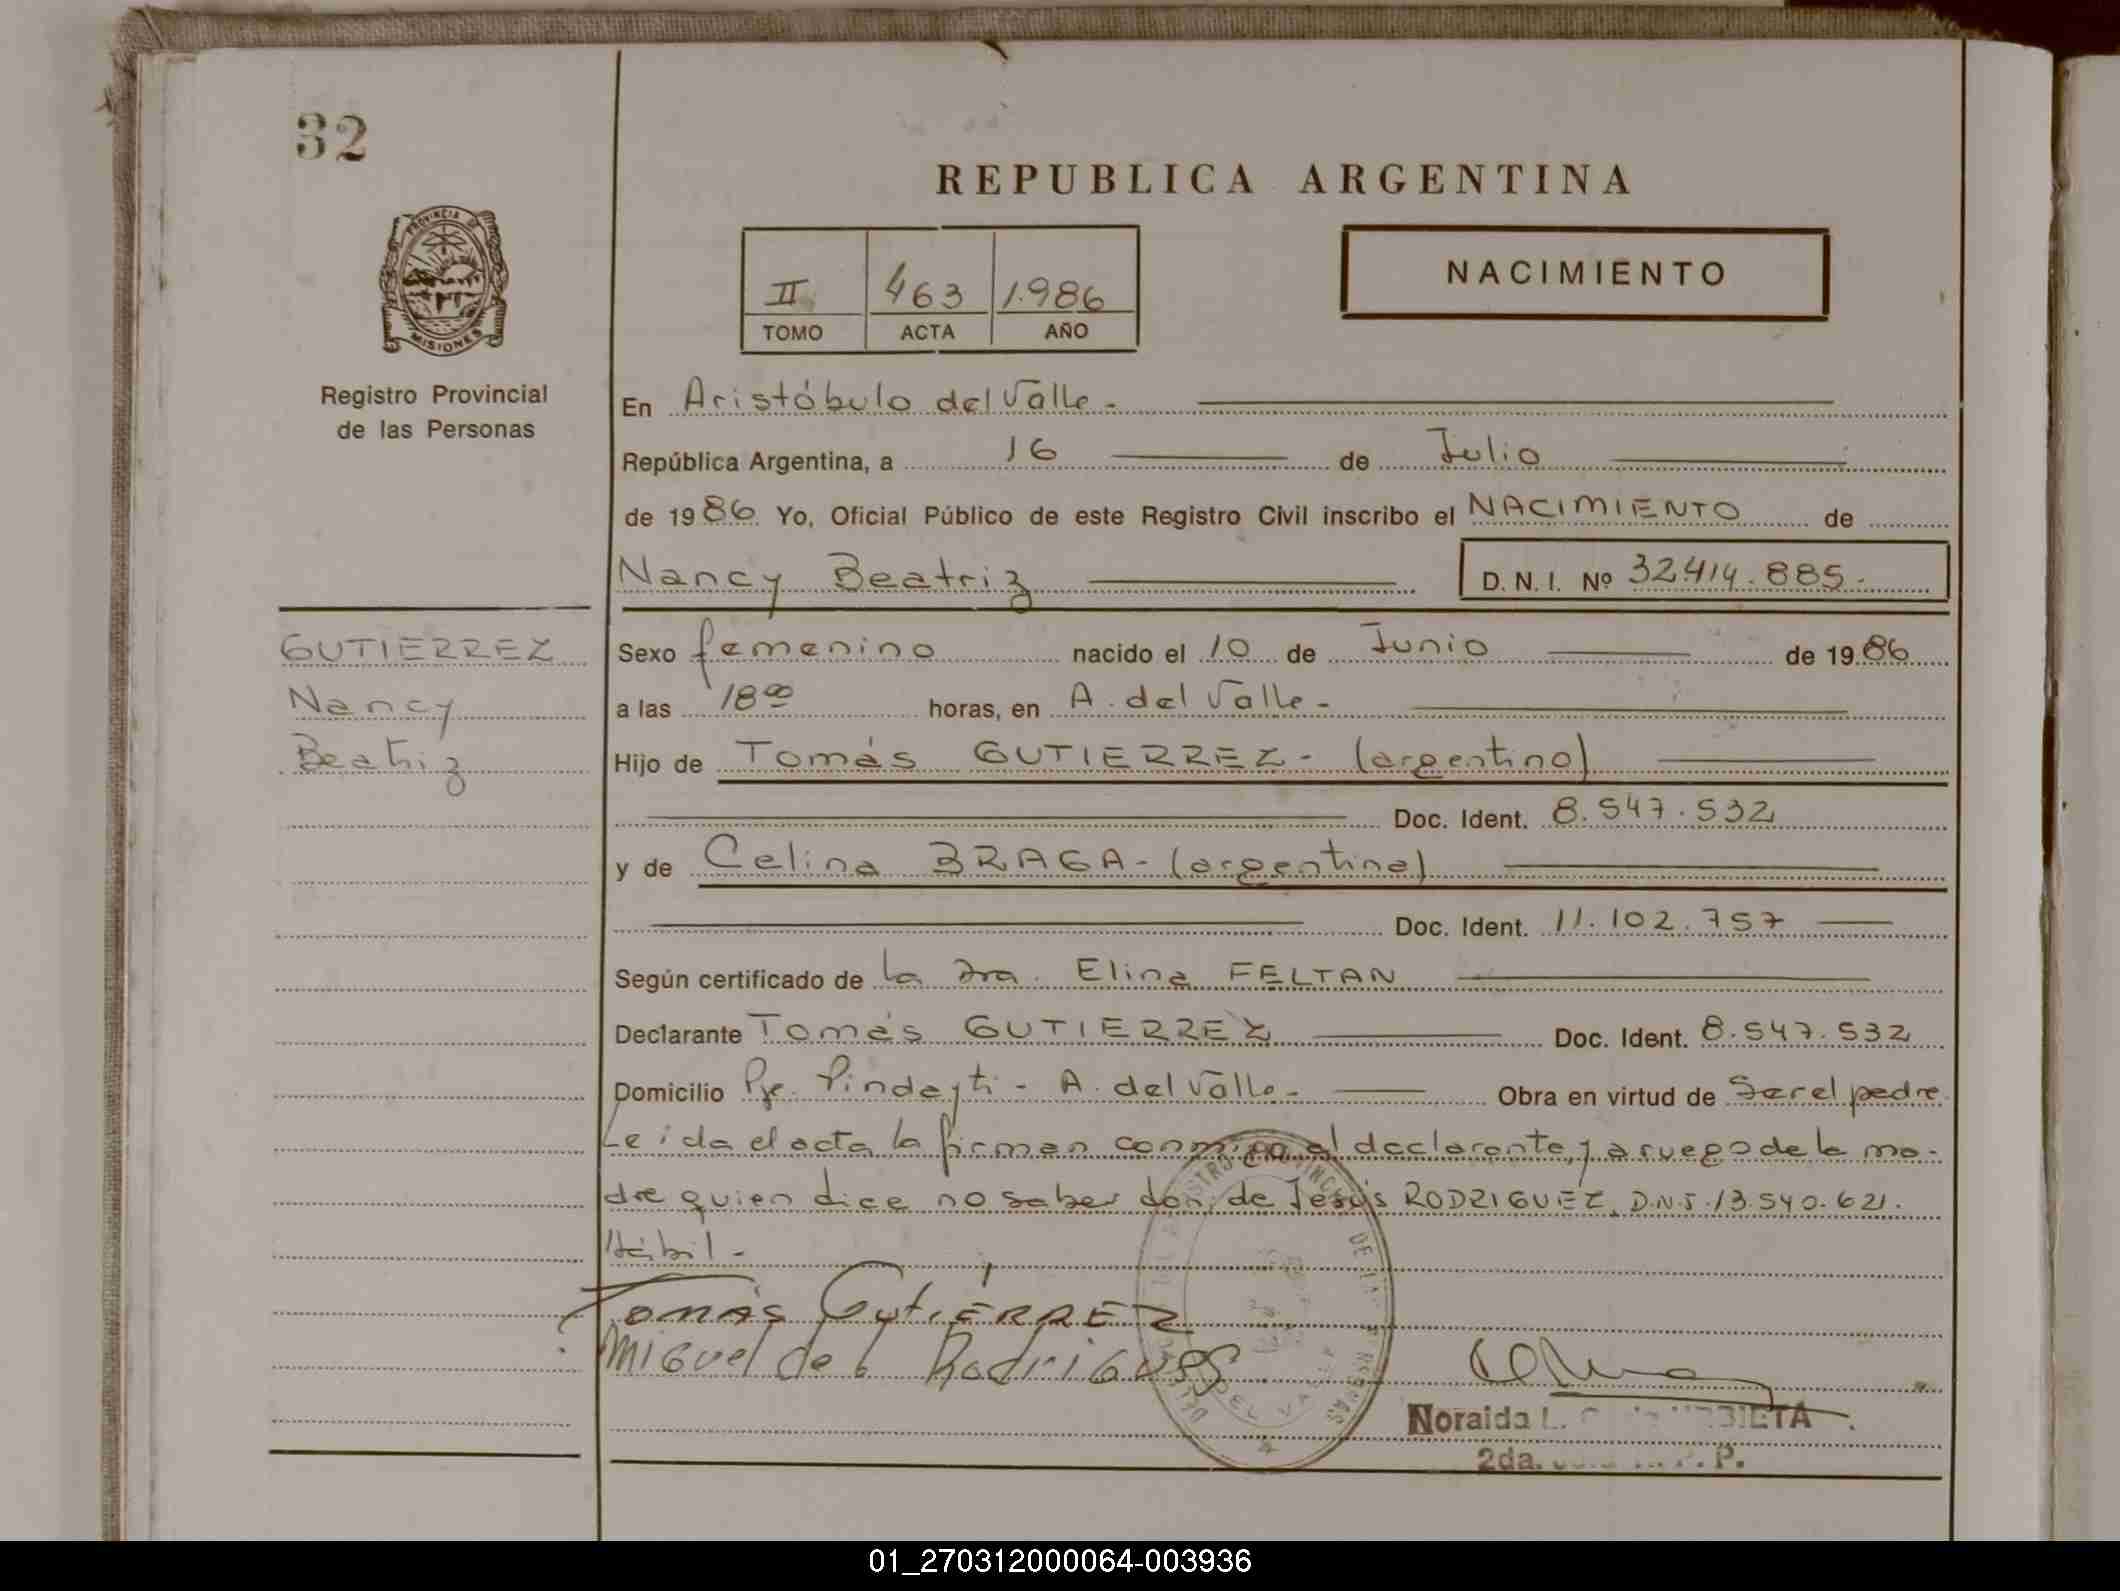 32
REPUBLICA ARGENTINA
PROVINCIA DE
MISIONES
II 463 1.986
TOMO ACTA AÑO
NACIMIENTO
Registro Provincial
de las Personas
En Aristóbulo del Valle -
República Argentina, a 16 de Julio
de 1986. Yo, Oficial Público de este Registro Civil inscribo el NACIMIENTO de
Nancy Beatriz D. N. I. Nº 32.414.885.-
GUTIERREZ
Nancy
Beatriz
Sexo femenino nacido el 10 de Junio de 1986
a las 18 00 horas, en A. del Valle -
Hijo de Tomás GUTIERREZ - (argentino)
Doc. Ident. 8.547.532
y de Celina BRAGA - (argentina)
Doc. Ident. 11.102.757
Según certificado de la Dra. Elina FELTAN
Declarante Tomás GUTIERREZ Doc. Ident. 8.547.532
Domicilio Pje. Pindayti - A. del Valle - Obra en virtud de Ser el padre
Leida el acta la firman conmigo el declarante, y a ruego de la ma-
dre quien dice no saber don de Jesús RODRIGUEZ D.N.I. 13.540.621.
Hábil -
Tomás Gutiérrez
Miguel de Rodrigues
DEL VALLE
Noraida L. URBIETA
2da. P. P.
01_270312000064-003936